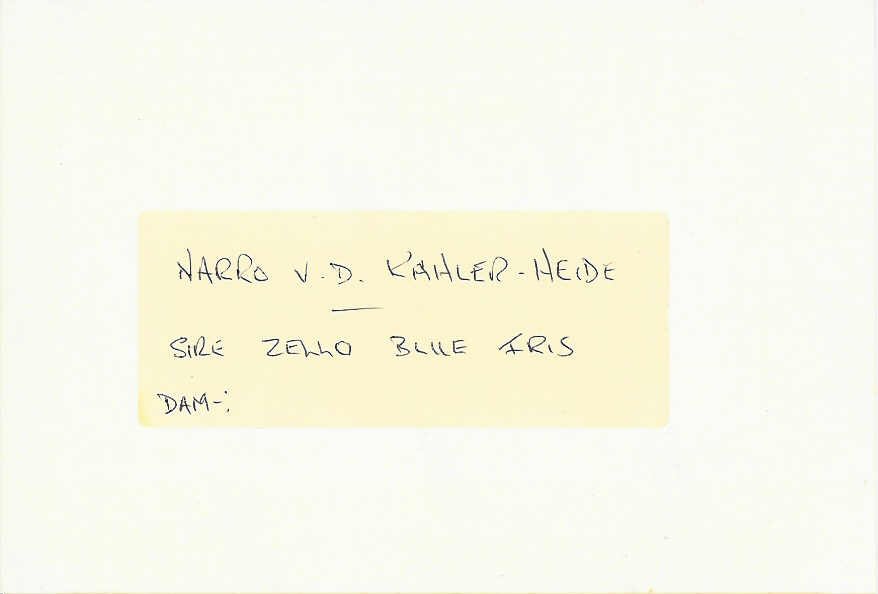 NARRO V.D. KAHLER-HEIDE
SIRE ZELLO BLUE IRIS
DAM-: